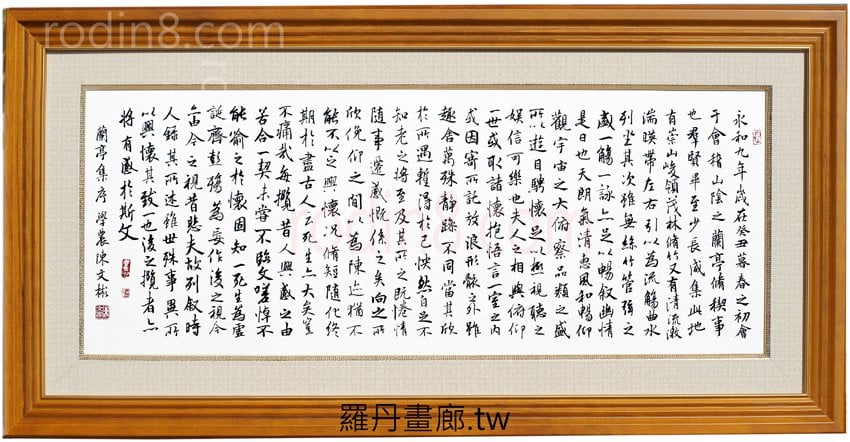 永和九年歲在癸丑暮春之初會
于會稽山陰之蘭亭脩稧事
也羣賢畢至少長咸集此地
有崇山峻領茂林脩竹又有清流激
湍暎帶左右引以為流觴曲水
列坐其次雖無絲竹管弦之
盛一觴一詠亦足以暢叙幽情
是日也天朗氣清惠風和暢仰
觀宇宙之大俯察品類之盛
所以遊目騁懷足以極視聽之
娛信可樂也夫人之相與俯仰
一世或取諸懷抱悟言一室之內
或因寄所託放浪形骸之外雖
趣舍萬殊靜躁不同當其欣
於所遇暫得於己怏然自足不
知老之將至及其所之既惓情
隨事遷感慨係之矣向之所
欣俛仰之間以為陳迹猶不
能不以之興懷況脩短隨化終
期於盡古人云死生亦大矣豈
不痛哉每攬昔人興感之由
若合一契未嘗不臨文嗟悼不
能喻之於懷固知一死生為虛
誕齊彭殤為妄作後之視今
亦由今之視昔悲夫故列叙時
人錄其所述雖世殊事異所
以興懷其致一也後之攬者亦
將有感於斯文
蘭亭集序 學農陳文彬
rodin8.com
rodin8.com
羅丹畫廊.tw